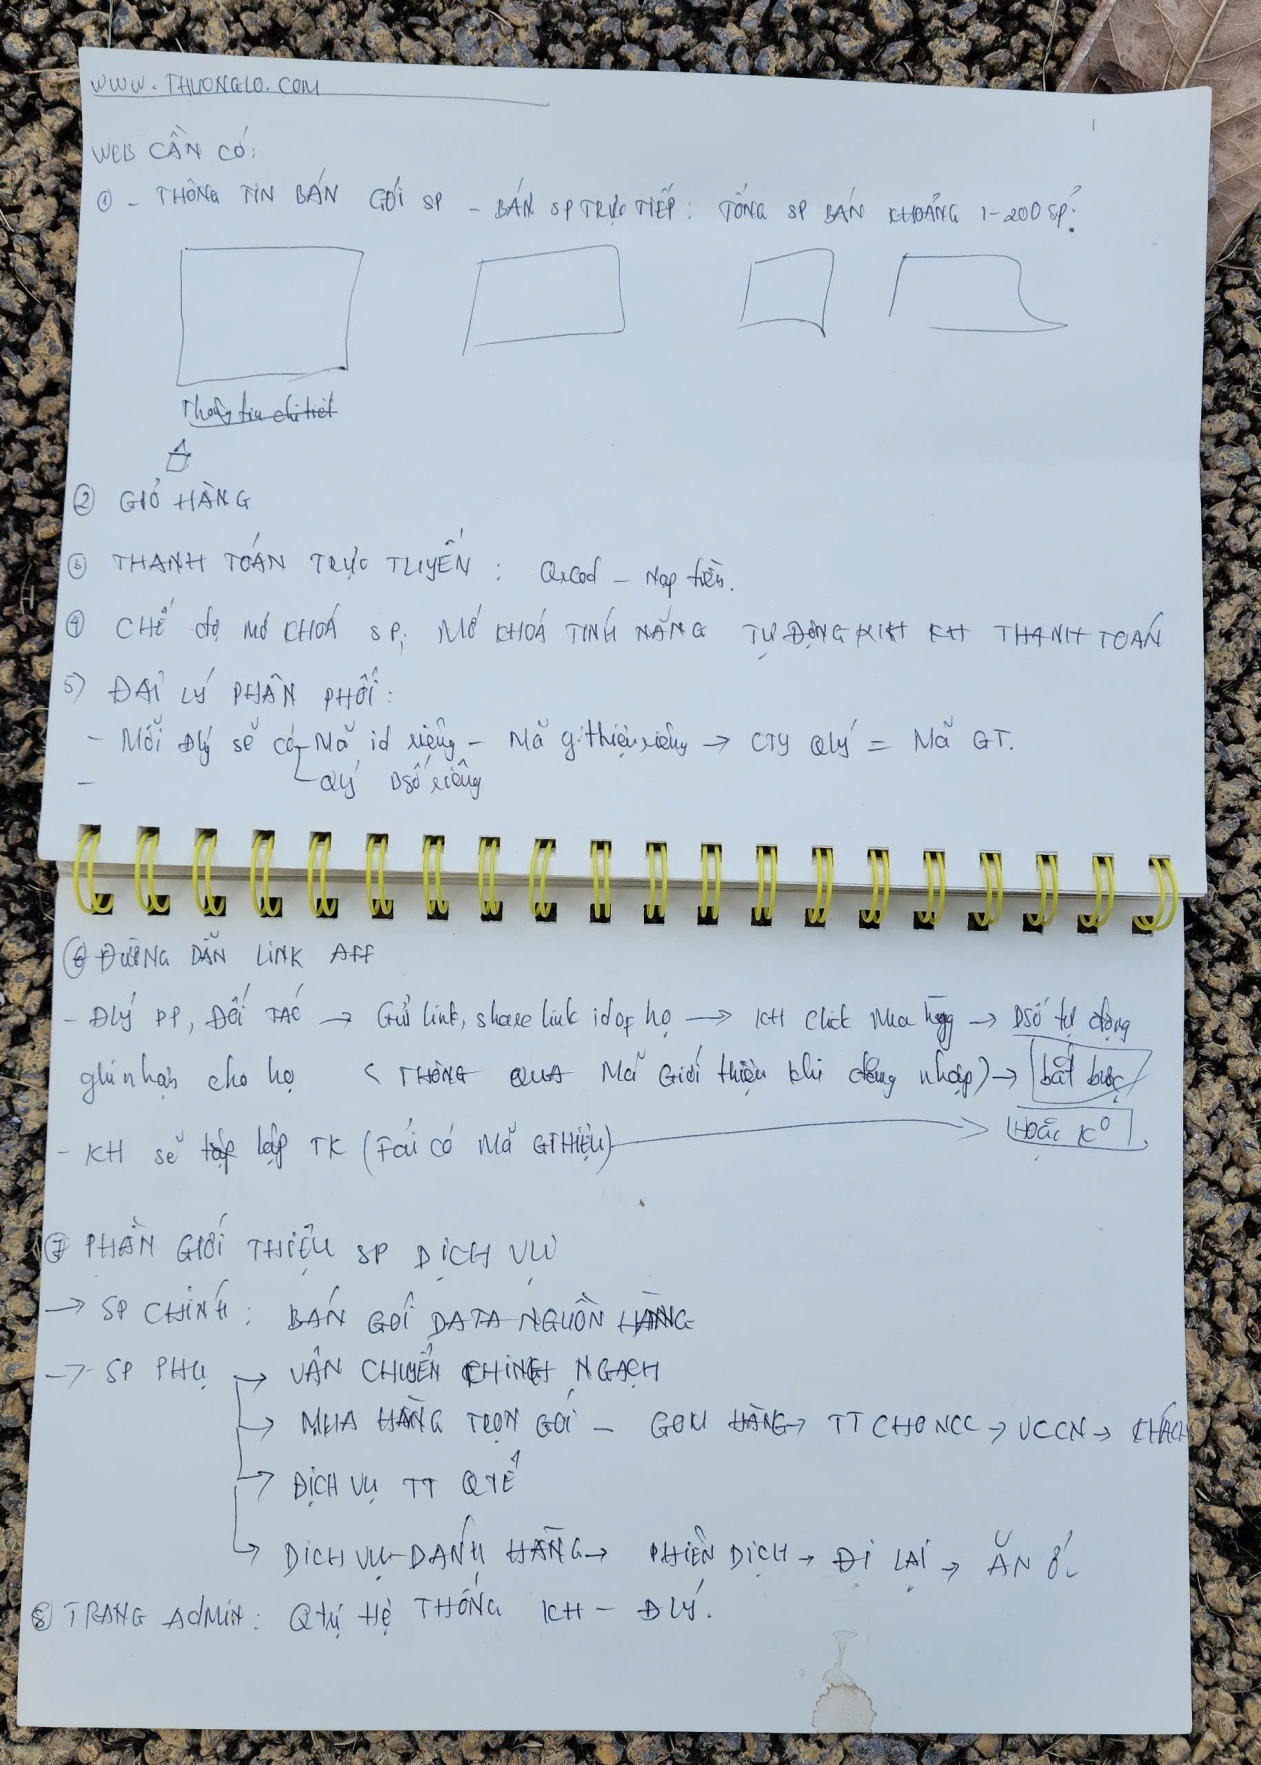 WWW.THUONGLO.COM
1
WEB CẦN CÓ:
① - THÔNG TIN BÁN GÓI SP - BÁN SP TRỰC TIẾP: TỔNG SP BÁN KHOẢNG 1-200 SP.
Thông tin chi tiết
② GIỎ HÀNG
③ THANH TOÁN TRỰC TUYẾN: QrCod - Nạp tiền.
④ CHẾ độ MỞ KHOÁ SP, MỞ KHOÁ TÍNH NĂNG TỰ ĐỘNG KHI KH THANH TOÁN
5) ĐẠI LÝ PHÂN PHỐI:
- Mỗi Đlý sẽ có - Mã id riêng - Mã g.thiệu riêng → CTY Qlý = Mã GT.
- QLý Dsố riêng
⑥ ĐƯỜNG DẪN LINK AFF
- ĐLý PP, ĐỐI TÁC → Gửi link, share link id of họ → KH Click Mua hàng → Dsố tự động
ghi nhận cho họ (THÔNG QUA Mã Giới thiệu khi đăng nhập) → bắt buộc
- KH sẽ lập TK (Fải có Mã GTHIỆU) → Hoặc K⁰
⑦ PHẦN GIỚI THIỆU SP DỊCH VỤ
→ SP CHÍNH: BÁN GÓI DATA NGUỒN HÀNG
→ SP PHỤ → VẬN CHUYỂN CHÍNH NGẠCH
→ MUA HÀNG TRỌN GÓI - GOM HÀNG → TT CHO NCC → VCCN → KHÁCH
→ DỊCH VỤ TT QTẾ
→ DỊCH VỤ ĐÁNH HÀNG → PHIÊN DỊCH → ĐI LẠI → ĂN Ở
⑧ TRANG ADMIN: QTrị Hệ THỐNG KH - ĐLÝ.